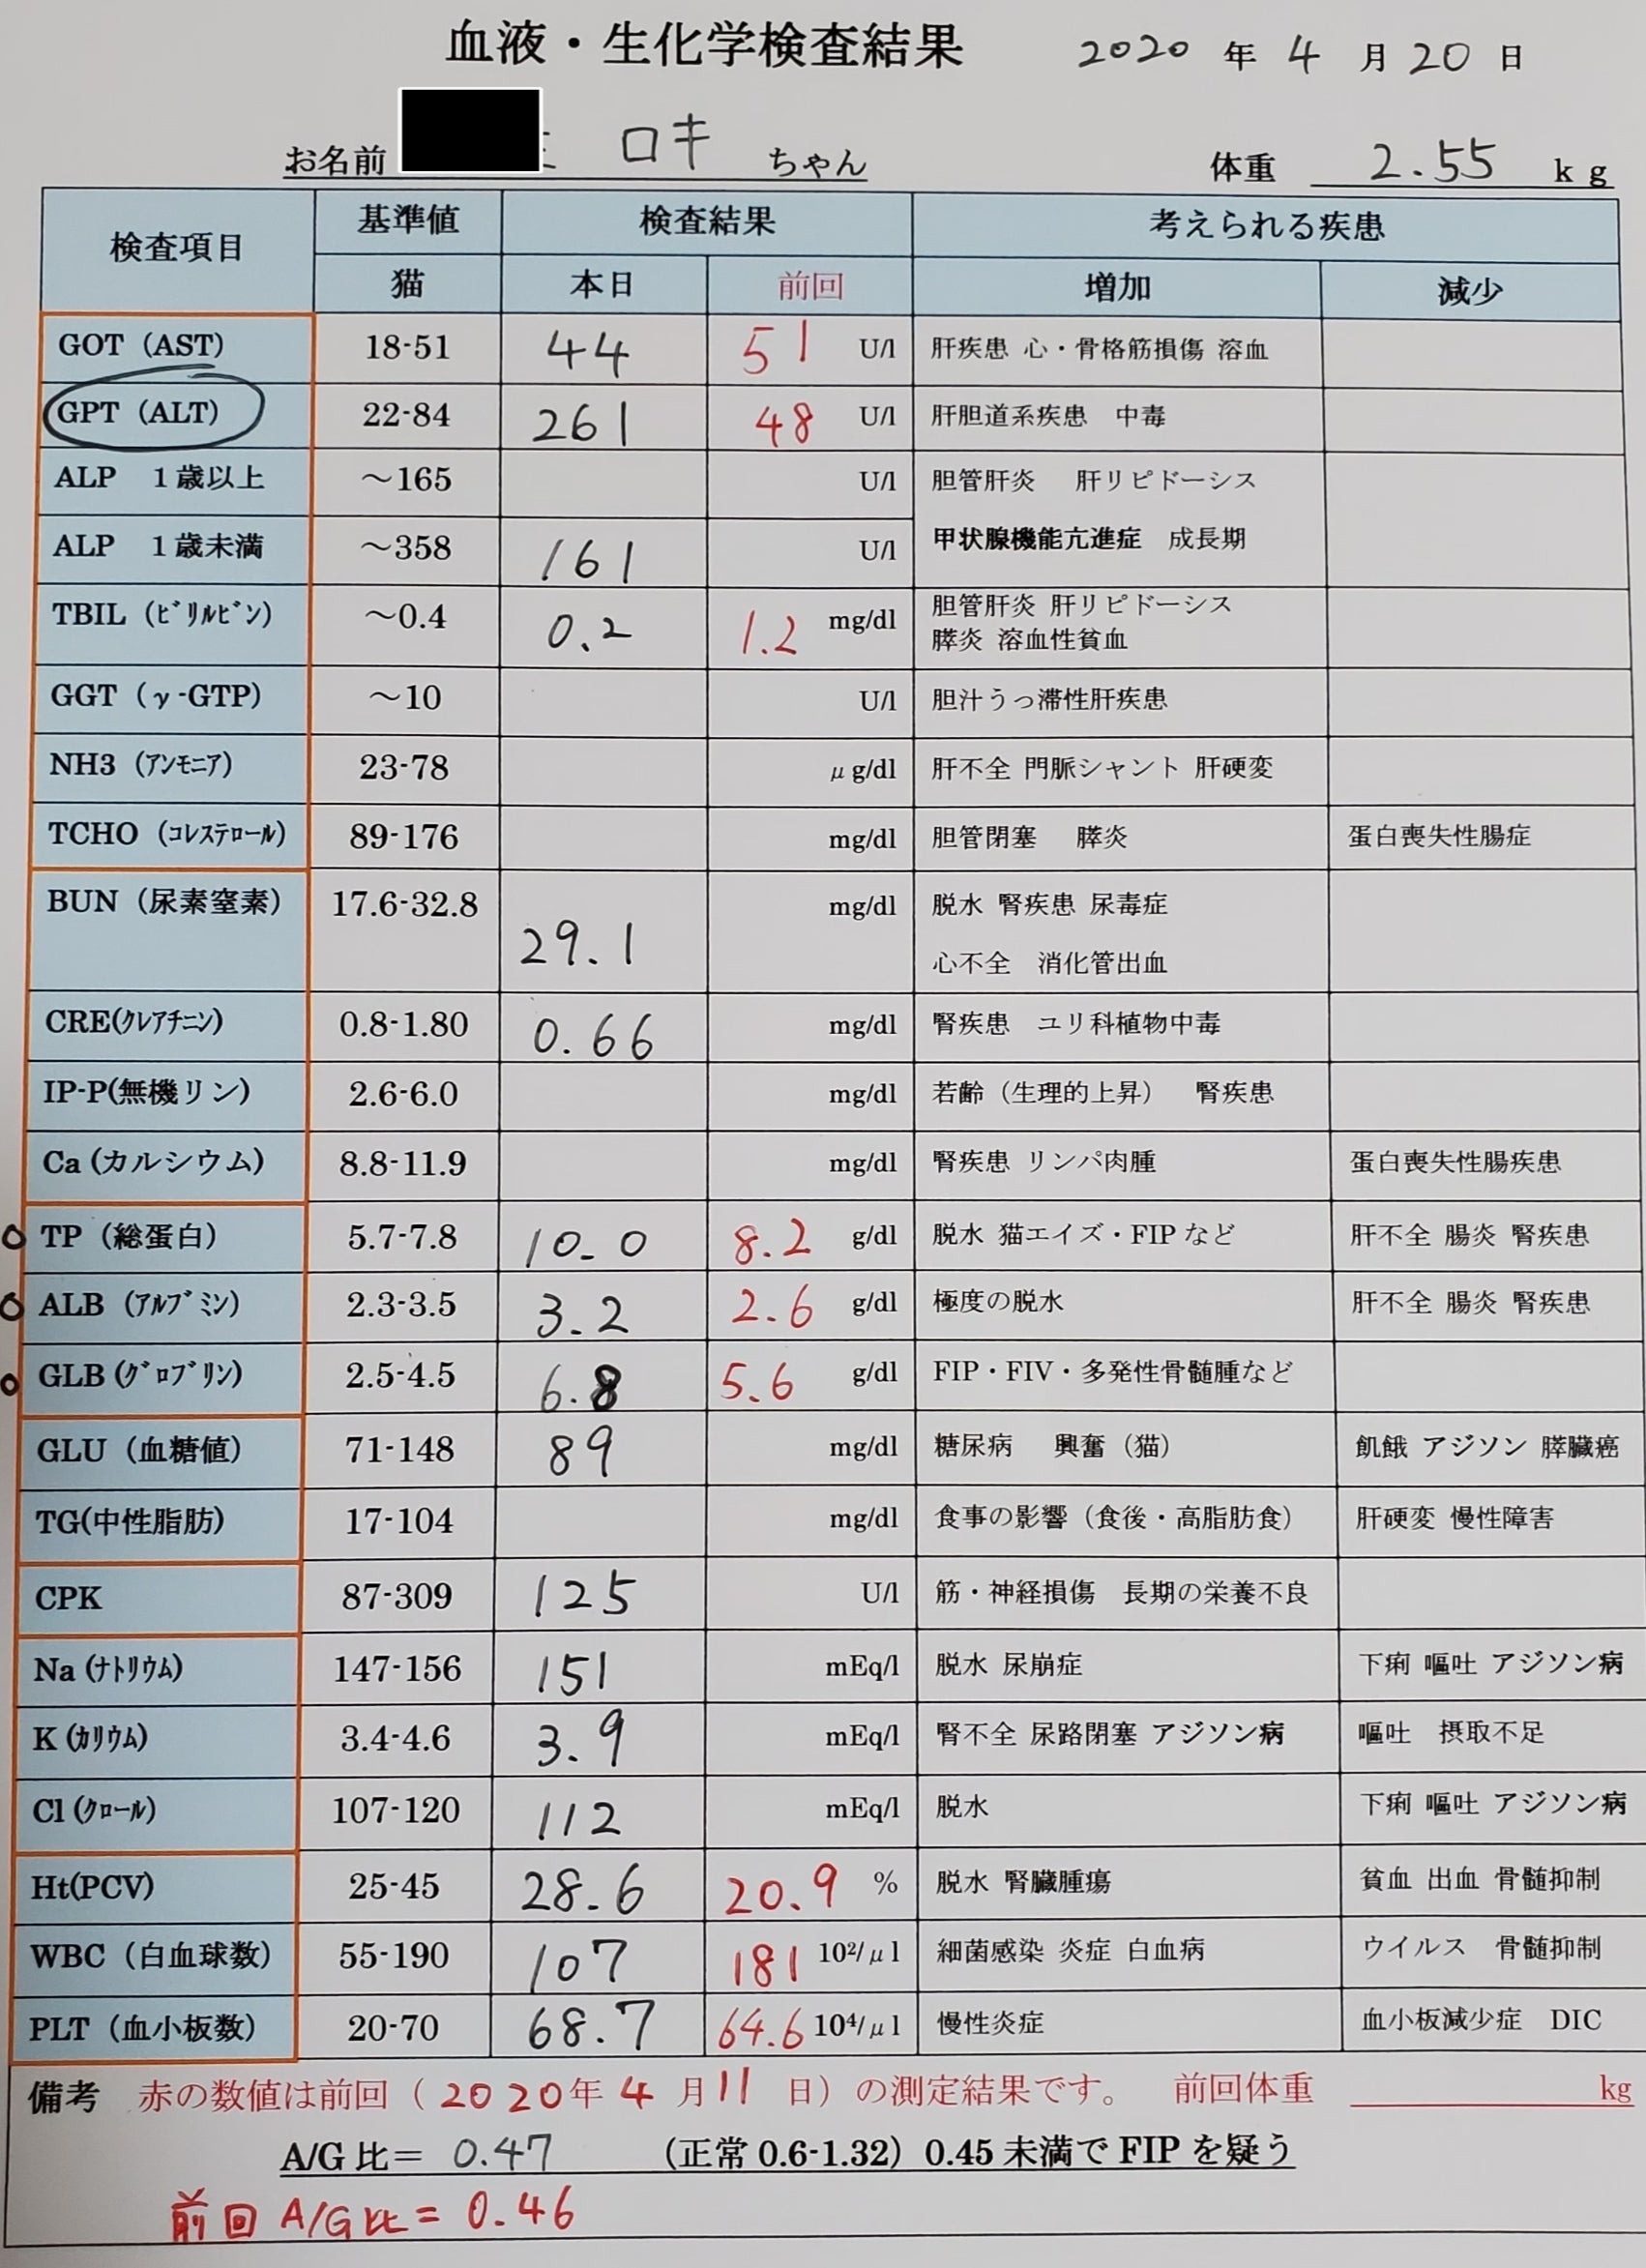 血液・生化学検査結果 2020 年 4 月 20 日
お名前 ロキ ちゃん 体重 2.55 kg
検査項目 基準値 検査結果 考えられる疾患
猫 本日 前回 増加 減少
GOT（AST） 18-51 44 51 U/l 肝疾患 心・骨格筋損傷 溶血
GPT（ALT） 22-84 261 48 U/l 肝胆道系疾患 中毒
ALP 1歳以上 ～165 U/l 胆管肝炎 肝リピドーシス
ALP 1歳未満 ～358 161 U/l 甲状腺機能亢進症 成長期
TBIL（ﾋﾞﾘﾙﾋﾞﾝ） ～0.4 0.2 1.2 mg/dl 胆管肝炎 肝リピドーシス
膵炎 溶血性貧血
GGT（γ-GTP） ～10 U/l 胆汁うっ滞性肝疾患
NH3（ｱﾝﾓﾆｱ） 23-78 μg/dl 肝不全 門脈シャント 肝硬変
TCHO（ｺﾚｽﾃﾛｰﾙ） 89-176 mg/dl 胆管閉塞 膵炎 蛋白喪失性腸症
BUN（尿素窒素） 17.6-32.8 29.1 mg/dl 脱水 腎疾患 尿毒症
心不全 消化管出血
CRE(ｸﾚｱﾁﾆﾝ) 0.8-1.80 0.66 mg/dl 腎疾患 ユリ科植物中毒
IP-P(無機リン) 2.6-6.0 mg/dl 若齢（生理的上昇） 腎疾患
Ca(カルシウム) 8.8-11.9 mg/dl 腎疾患 リンパ肉腫 蛋白喪失性腸疾患
TP（総蛋白） 5.7-7.8 10.0 8.2 g/dl 脱水 猫エイズ・FIPなど 肝不全 腸炎 腎疾患
ALB（ｱﾙﾌﾞﾐﾝ） 2.3-3.5 3.2 2.6 g/dl 極度の脱水 肝不全 腸炎 腎疾患
GLB(ｸﾞﾛﾌﾞﾘﾝ) 2.5-4.5 6.8 5.6 g/dl FIP・FIV・多発性骨髄腫など
GLU（血糖値） 71-148 89 mg/dl 糖尿病 興奮（猫） 飢餓 アジソン 膵臓癌
TG(中性脂肪) 17-104 mg/dl 食事の影響（食後・高脂肪食） 肝硬変 慢性障害
CPK 87-309 125 U/l 筋・神経損傷 長期の栄養不良
Na(ﾅﾄﾘｳﾑ) 147-156 151 mEq/l 脱水 尿崩症 下痢 嘔吐 アジソン病
K(ｶﾘｳﾑ) 3.4-4.6 3.9 mEq/l 腎不全 尿路閉塞 アジソン病 嘔吐 摂取不足
Cl(ｸﾛｰﾙ) 107-120 112 mEq/l 脱水 下痢 嘔吐 アジソン病
Ht(PCV) 25-45 28.6 20.9 % 脱水 腎臓腫瘍 貧血 出血 骨髄抑制
WBC（白血球数） 55-190 107 181 10²/μl 細菌感染 炎症 白血病 ウイルス 骨髄抑制
PLT（血小板数） 20-70 68.7 64.6 10⁴/μl 慢性炎症 血小板減少症 DIC
備考 赤の数値は前回（2020年4月11日）の測定結果です。 前回体重 kg
A/G比＝ 0.47 （正常0.6-1.32）0.45未満でFIPを疑う
前回 A/G比＝0.46